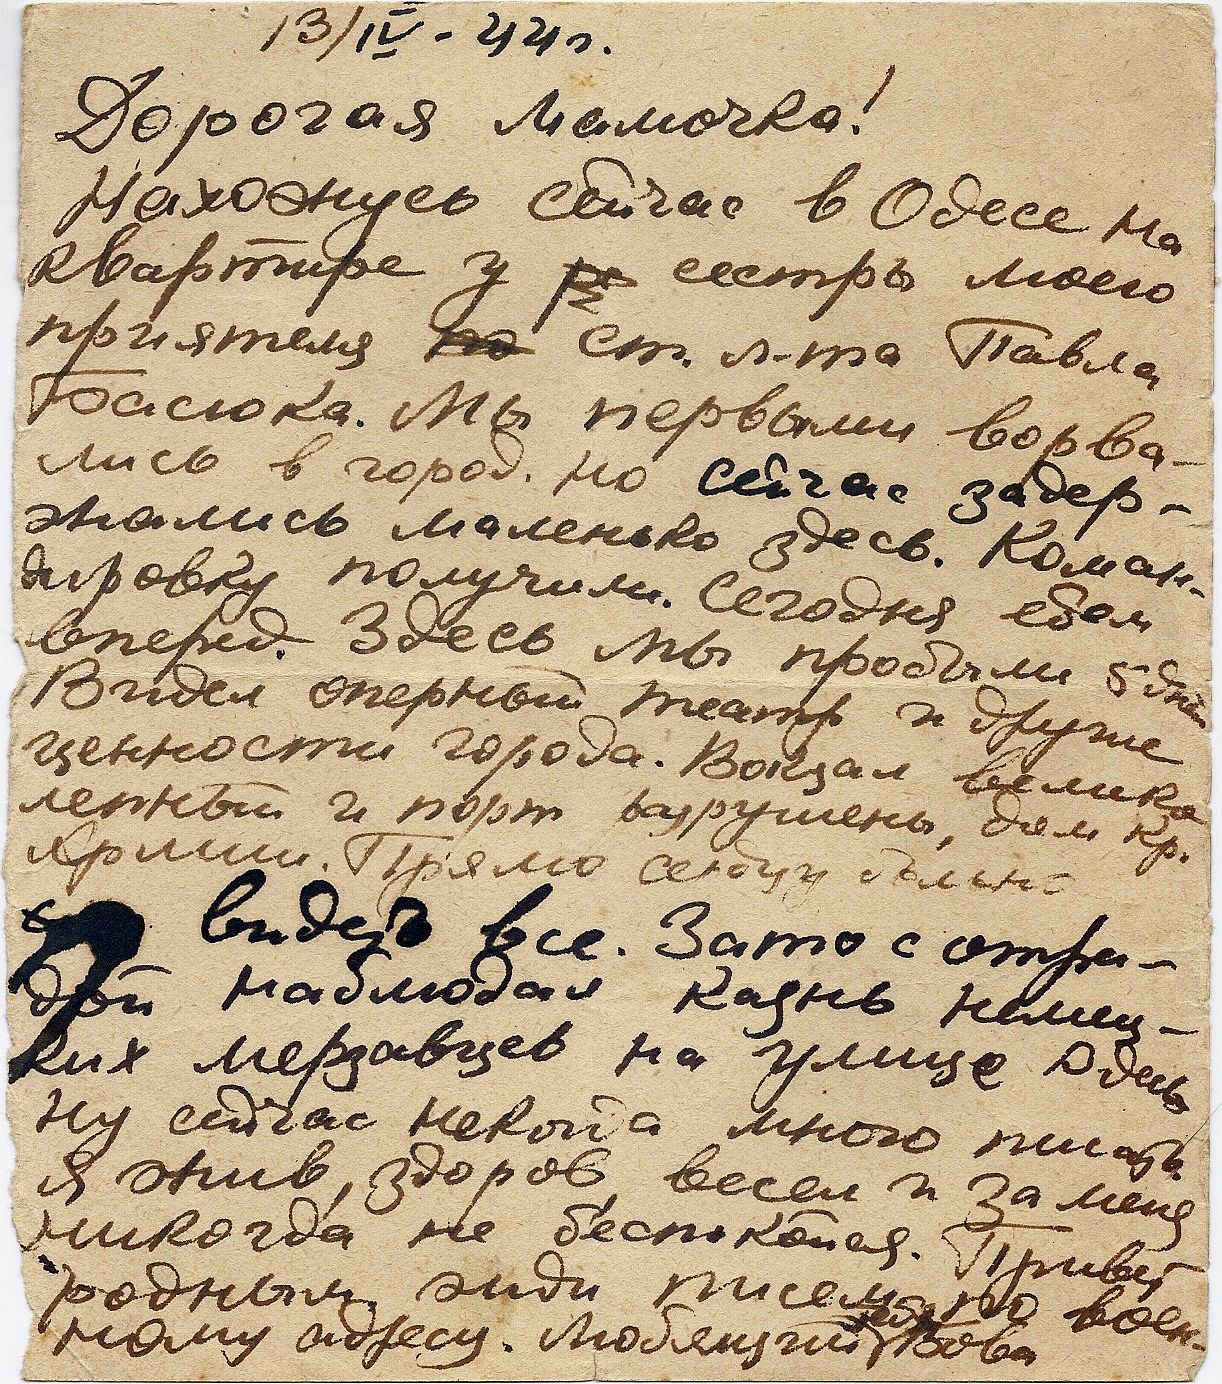 13/IV - 44 г.
Дорогая Мамочка!
Нахожусь сейчас в Одесе на
квартире у сестры моего
приятеля ст. л-та Павла
Басюка. Мы первыми ворва-
лись в город. Но сейчас задер-
жались маленько здесь. Коман-
дировку получили. Сегодня едем
вперед. Здесь мы пробыли 5 дней
Видел оперный театр и другие
ценности города. Вокзал велико
лепный и порт разрушены, дом Кр.
Армии. Прямо сердцу больно
видеть все. Зато с отра-
дой наблюдал казнь немец-
ких мерзавцев на улице Одессы
Ну сейчас некогда много писать
я жив, здоров, весел и за меня
никогда не беспокойся. Привет
родным. жди писем по воен-
ному адресу. Любящий тебя Вова